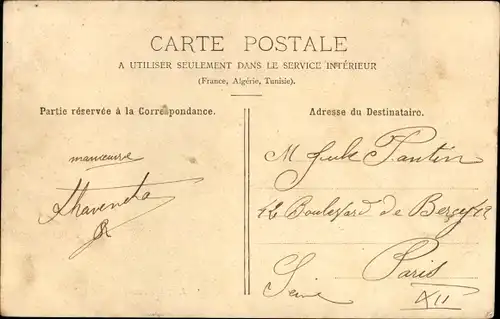 CARTE POSTALE
A UTILISER SEULEMENT DANS LE SERVICE INTÉRIEUR
(France, Algérie, Tunisie).
Partie réservée à la Correspondance.
Adresse du Destinataire.
manœuvre
M Jule Pantin
42 Boulevard de Bercy 12
Paris
Seine XII